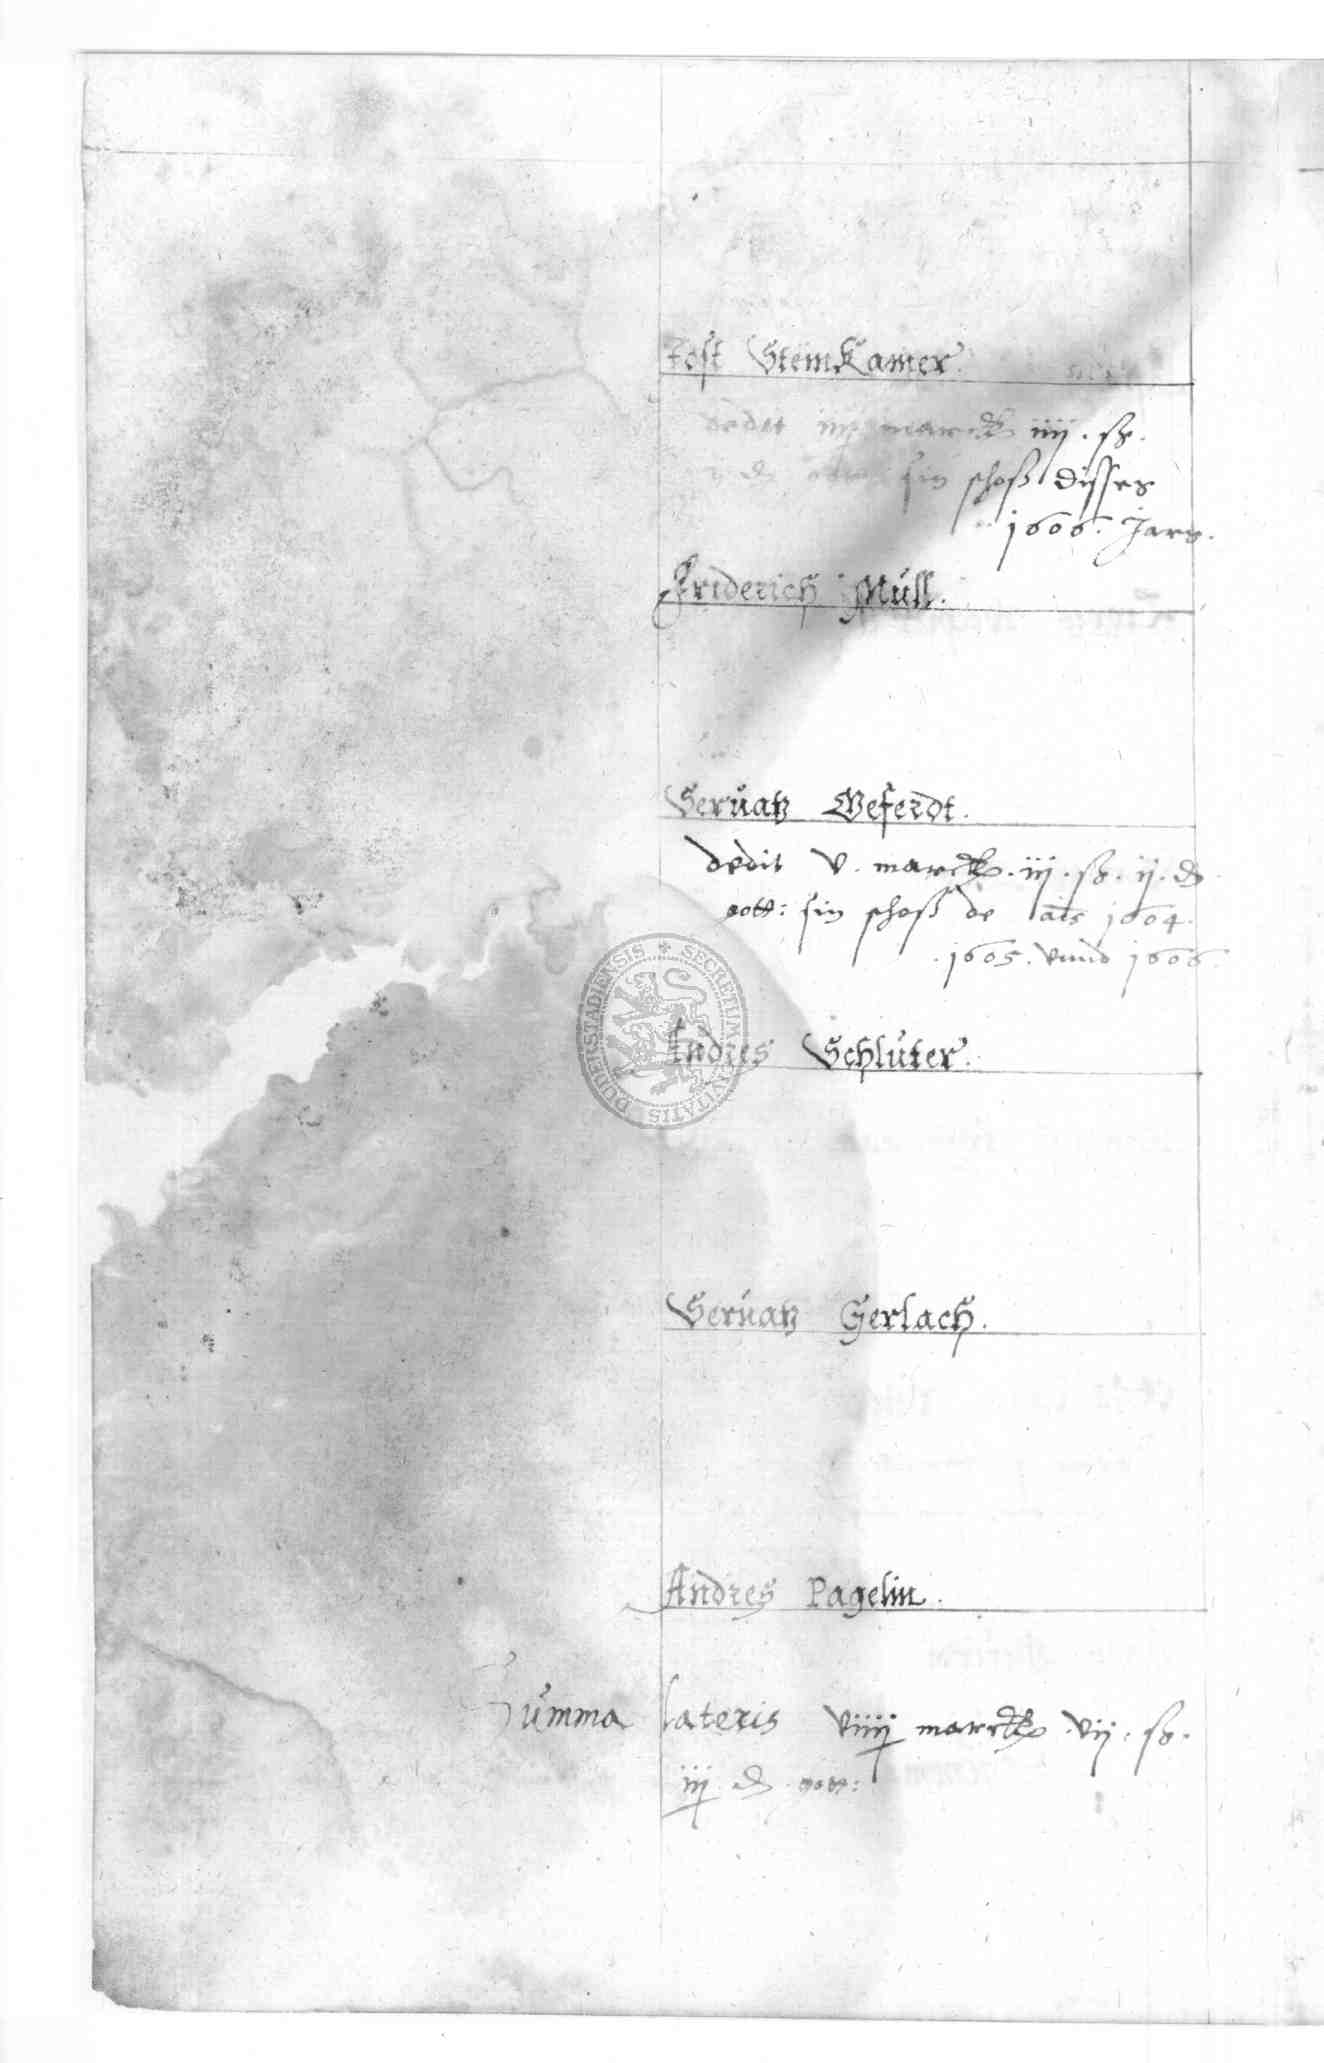 Jost Steinkamer.
dedit iiij marck iiij . ß.
ij ₰ sin schoß disses
1606. Jars.
Friderich Müll.
Seruatz Geferdt.
dedit v. marck. iij. ß. ij. ₰
gott: sin schoß de ais 1604.
1605. vnnd 1606.
SECRETUM CIVITATIS DUDERSTADIENSIS
Andres Schluter.
Seruatz Gerlach.
Andres Pagelin.
Summa lateris viiij marck vij. ß.
iiij ₰ gott: